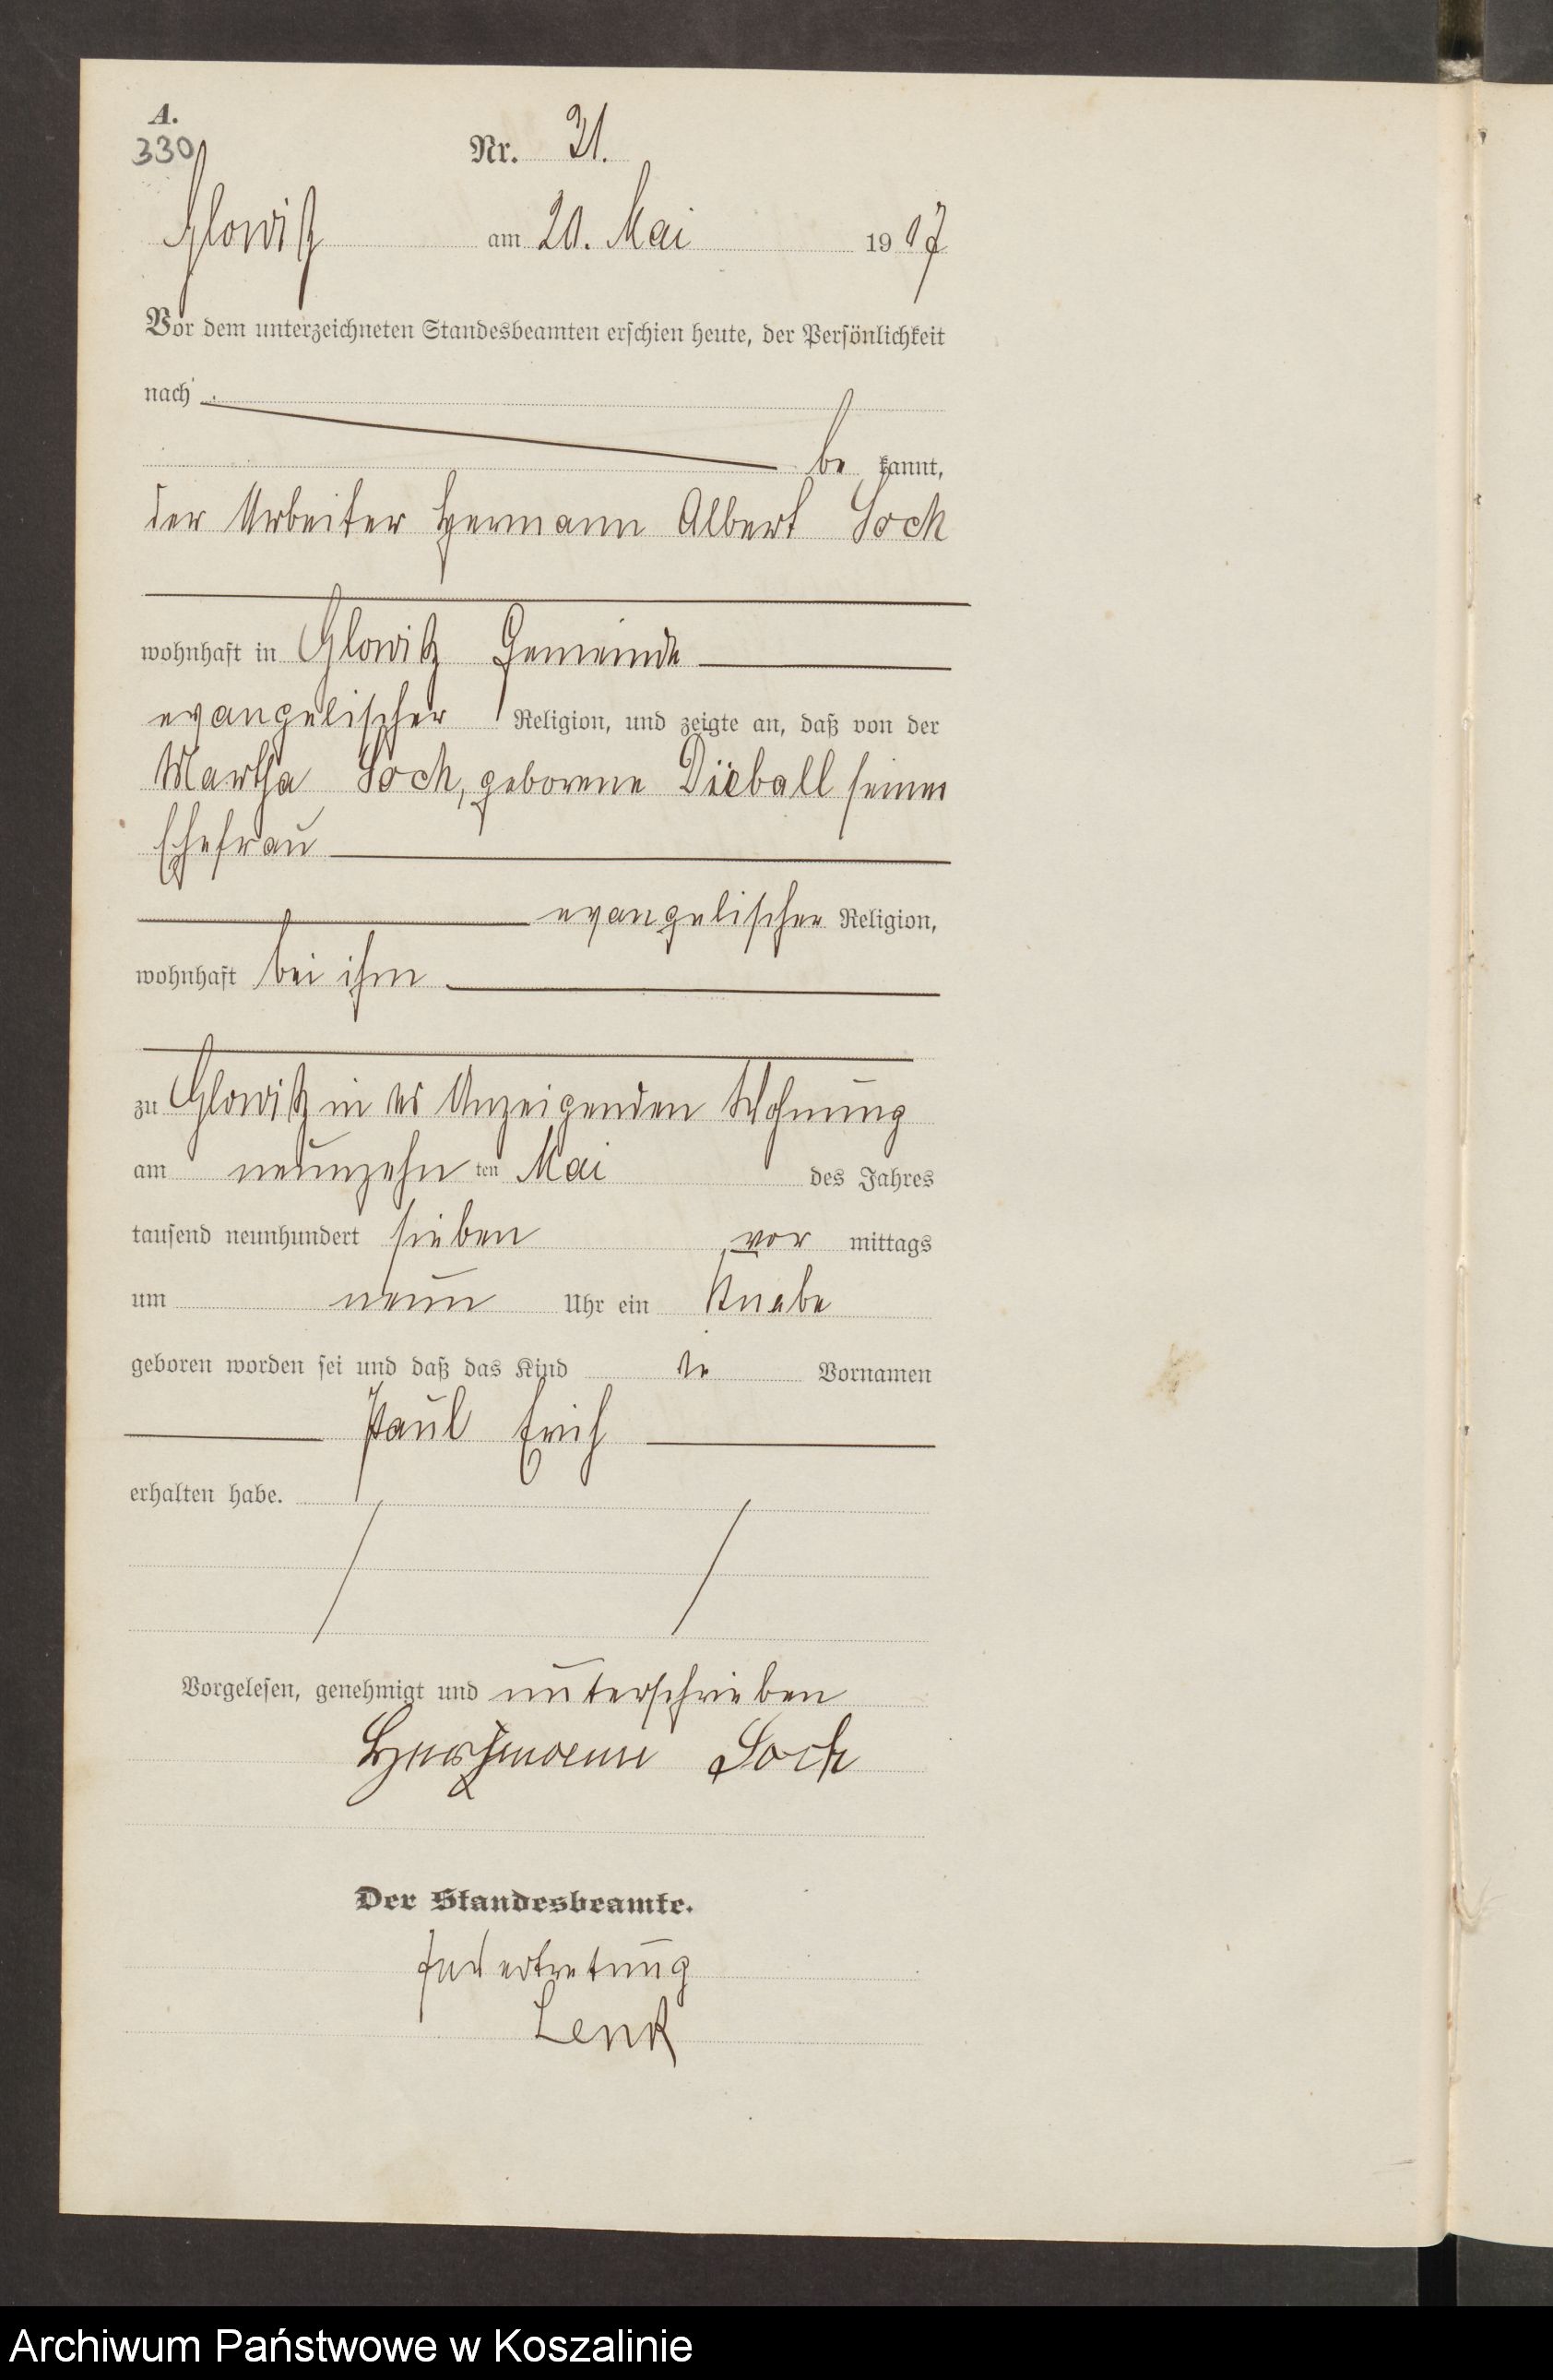 A.
330
Nr. 31.
Glowitz am 20. Mai 1907
Vor dem unterzeichneten Standesbeamten erschien heute, der Persönlichkeit
nach
be kannt,
der Arbeiter Hermann Albert Soch
wohnhaft in Glowitz Gemeinde
evangelischer Religion, und zeigte an, daß von der
Martha Soch, geborene Dieball seiner
Ehefrau
evangelischer Religion,
wohnhaft bei ihm
zu Glowitz in des Anzeigenden Wohnung
am neunzehn ten Mai des Jahres
tausend neunhundert sieben vor mittags
um neun Uhr ein Knabe
geboren worden sei und daß das Kind die Vornamen
Paul Erich
erhalten habe.
Vorgelesen, genehmigt und unterschrieben
Hermann Soch
Der Standesbeamte.
In Vertretung
Lenk
Archiwum Państwowe w Koszalinie